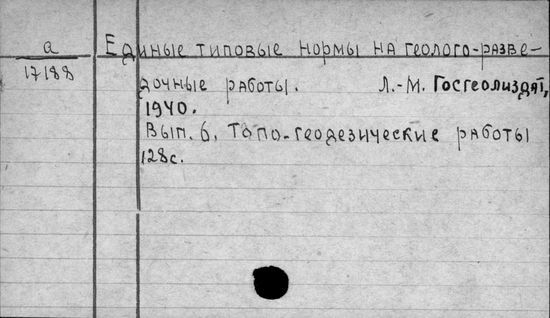 а Единые типовые нормы на геолого-разве-
17188
дочные работы. Л.-М. Госгеолиздат,
1940.
Вып. 6. Топо-геодезические работы
128с.